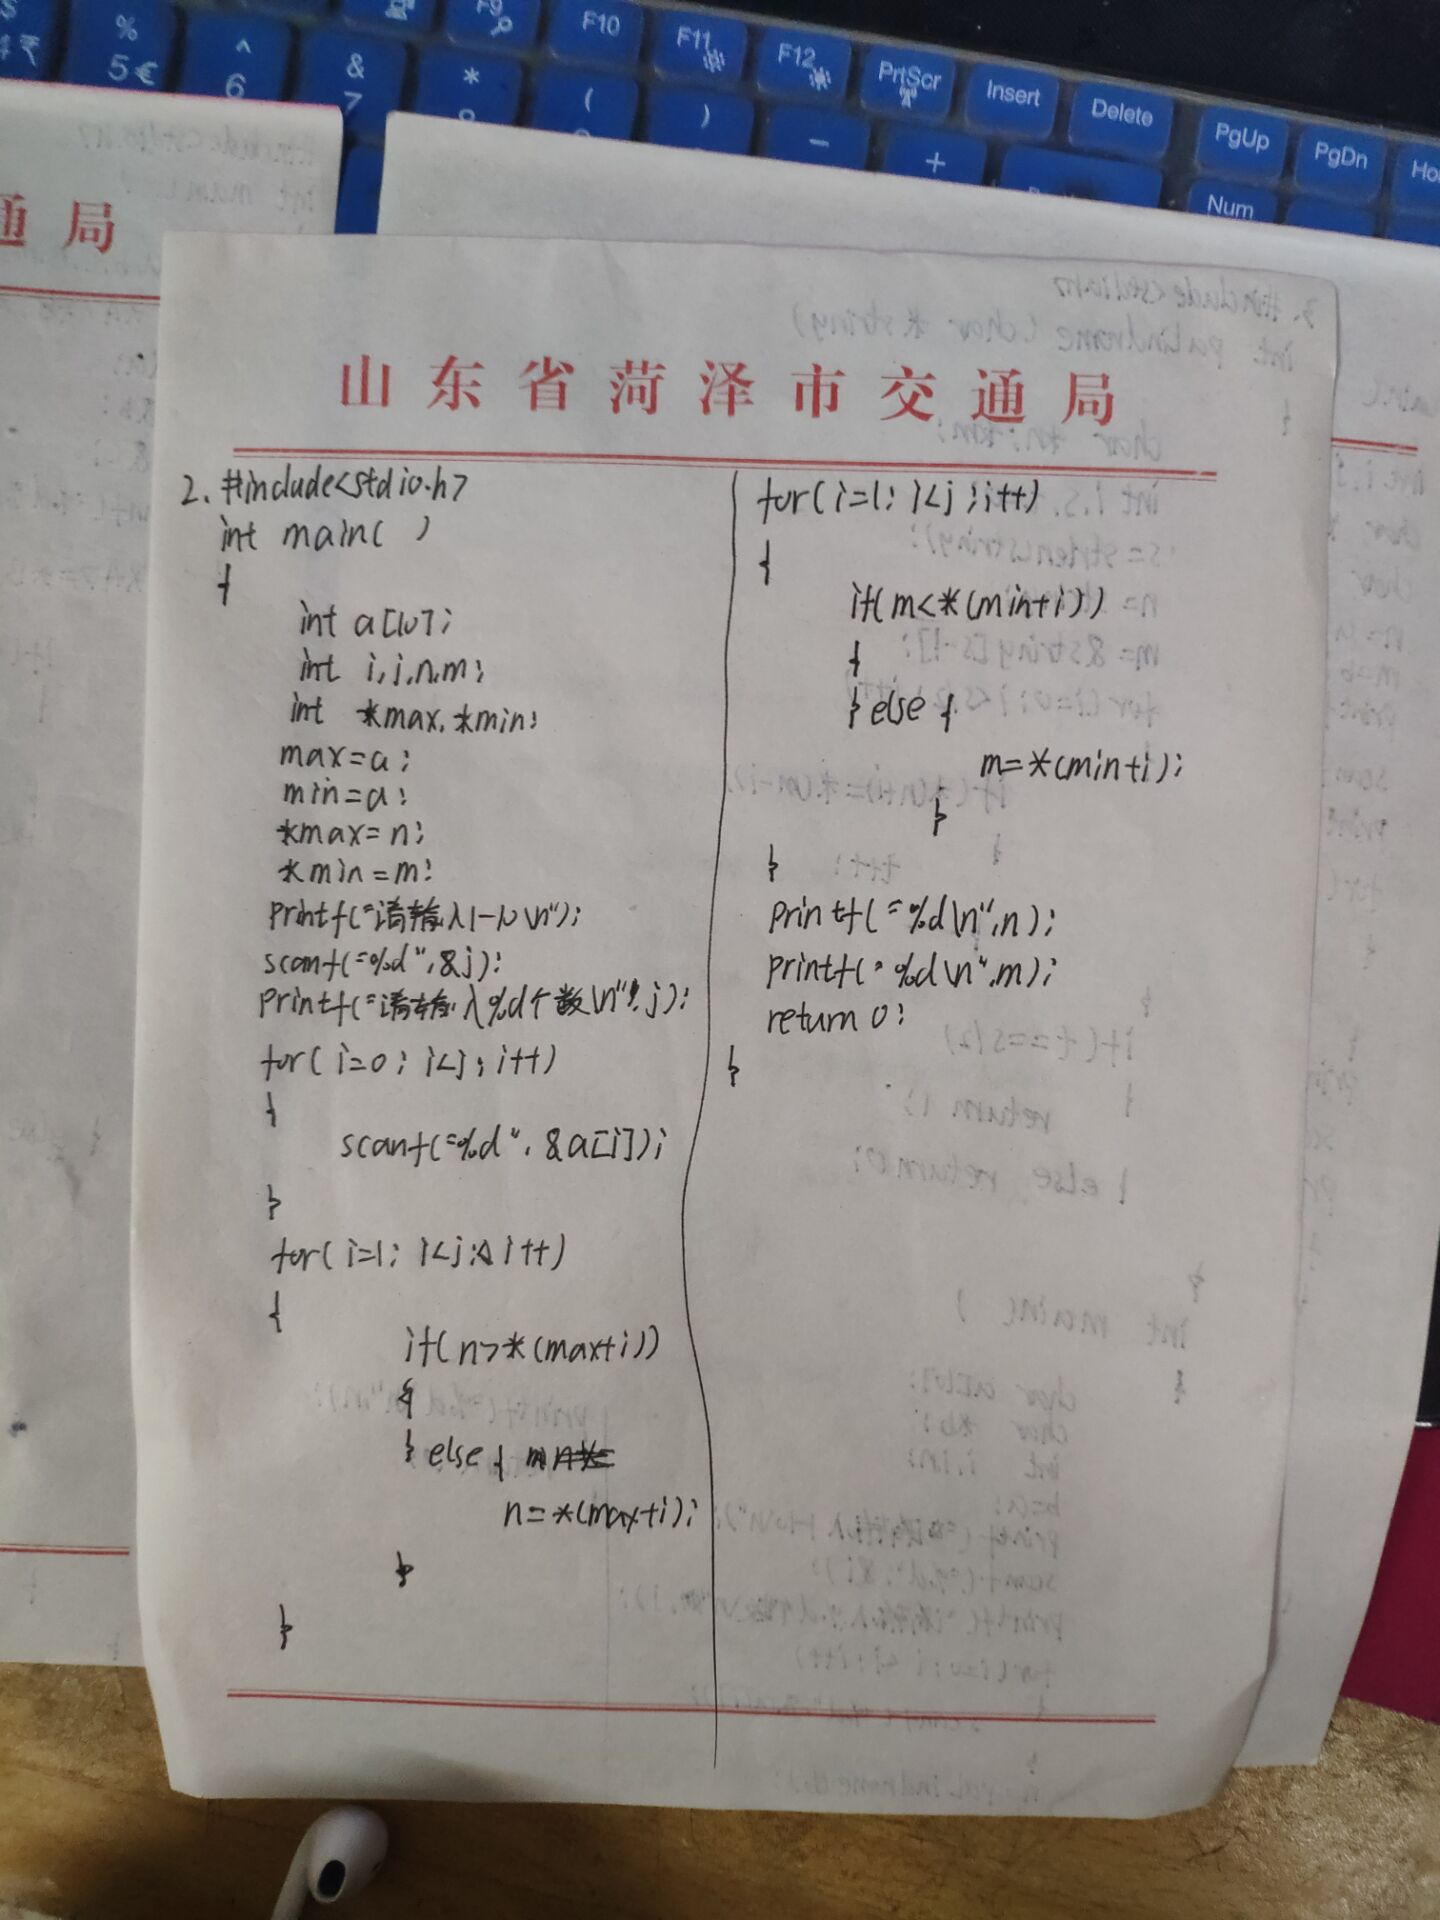 $
%
^
&
*
(
)
-
+
4₹
5€
6
7
F9
F10
F11
F12
PrtScr
Insert
Delete
PgUp
PgDn
Num
通局
山东省菏泽市交通局
2. #include<stdio.h>
int main( )
{
int a[10];
int i,j,n,m;
int *max,*min;
max=a;
min=a;
*max=n;
*min=m;
printf("请输入1-10\n");
scanf("%d",&j);
printf("请输入%d个数\n",j);
for(i=0;i<j;i++)
{
scanf("%d",&a[i]);
}
for(i=1;i<j;i++)
{
if(n>*(max+i))
{
}else{
n=*(max+i);
}
}
for(i=1;i<j;i++)
{
if(m<*(min+i))
{
}else{
m=*(min+i);
}
}
printf("%d\n",n);
printf("%d\n",m);
return 0;
}